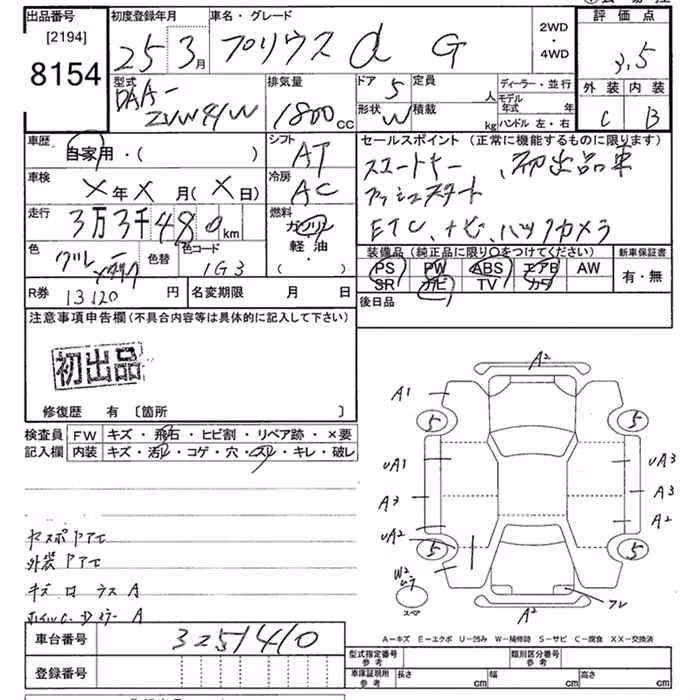 出品番号 初度登録年月 車名・グレード 評価点
[2194] 2WD・4WD
8154 25 3月 プリウス α G 3.5
型式 排気量 ドア 5 定員 人 ディーラー・並行 外装 内装
DAA-ZVW41W 1800cc 形状 W 積載 kg モデル年式 年 C B
ハンドル 左・右
車歴 自家用・( ) シフト AT セールスポイント (正常に機能するものに限ります)
車検 X年X月(X日) 冷房 AC スマートキー、初出品車
走行 3万3千480km 燃料 ガソリン 軽油 ( ) プッシュスタート
ETC、ナビ、バックカメラ
色 色替 色コード 1G3 装備品(純正品に限り○をつけてください) 新車保証書
PS PW ABS エアB AW 有・無
SR ナビ TV カワ
R券 13120円 名変期限 月 日 後日品
注意事項申告欄(不具合内容等は具体的に記入して下さい)
初出品
修復歴 有 〔箇所 〕
検査員記入欄 FW キズ・飛石・ヒビ割・リペア跡・×要
内装 キズ・活ヌ・コゲ・穴・スレ・キレ・破レ
外装
キズ
A
A2
A1
5 5
UA1 UA3
A3 A3
UA2 A2
5 5
W2
スペア
A2
A―キズ E―エクボ U―凹み W―補修跡 S―サビ C―腐食 XX―交換済
車台番号 3251410
登録番号
型式指定番号 参考 類別区分番号 参考
車庫証明用 参考 長さ cm 幅 cm 高さ cm